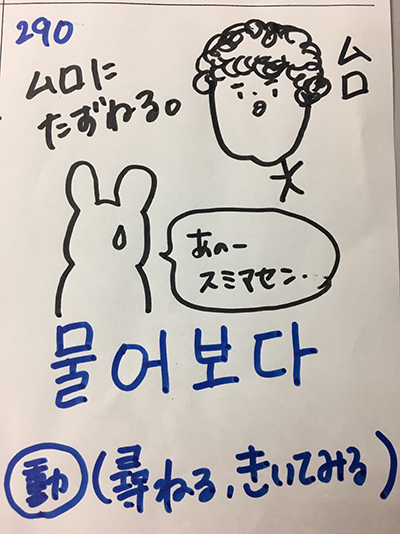 290
ムロに
たずねる。
ムロ
あのー
スミマセン・・
물어보다
動(尋ねる,きいてみる)